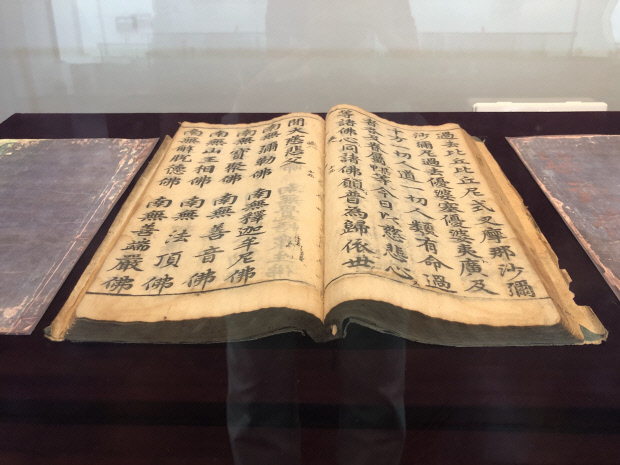 過去比丘比丘尼式叉摩那沙彌
沙彌尼過去優婆塞優婆夷廣及
十方一切人道一切人類有命過
者各及眷屬某等今日以慈悲心
等諸佛心同諸佛願普為歸依世
間大慈悲父
南無彌勒佛 南無釋迦牟尼佛
南無寶聚佛 南無善音佛
南無山王相佛 南無法頂佛
南無解脫德佛 南無善端嚴佛